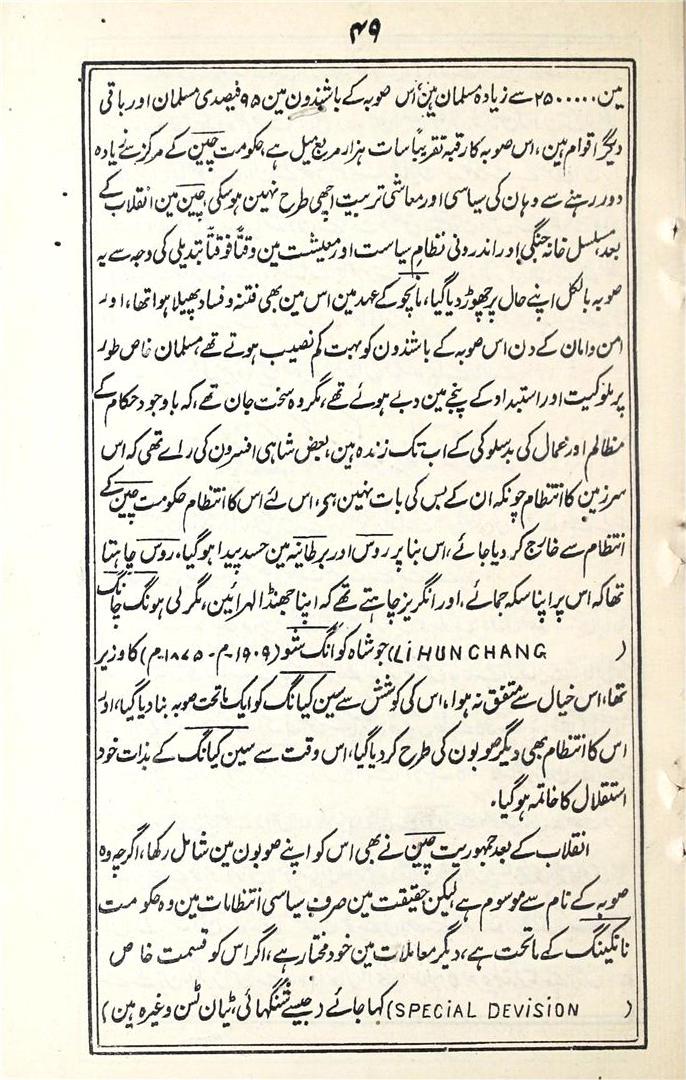 ۴۹
مین ۲۵۰۰۰۰۰ سے زیادہ مسلمان ہین اس صوبہ کے باشندون مین ۹۵ فیصدی مسلمان اور باقی
دیگر اقوام ہین، اس صوبہ کا رقبہ تقریباً سات ہزار مربع میل ہے، حکومت چین کے مرکز سے زیادہ
دور رہنے سے وہان کی سیاسی اور معاشی تربیت اچھی طرح نہین ہوسکی، چین مین انقلاب کے
بعد مسلسل خانہ جنگی اور اندرونی نظام سیاست اور معیشت مین وقتاً فوقتاً تبدیلی کی وجہ سے یہ
صوبہ بالکل اپنے حال پر چھوڑ دیا گیا، مانچو کے عہد مین اس مین بھی فتنہ و فساد پھیلا ہوا تھا، اور
امن وامان کے دن اس صوبہ کے باشندون کو بہت کم نصیب ہوتے تھے مسلمان خاص طور
پر ملوکیت اور استبداد کے پنجے مین دبے ہوئے تھے، مگر وہ سخت جان تھے، کہ باوجود حکام کے
مظالم اور عمال کی بدسلوکی کے اب تک زندہ ہین، بعض شاہی افسرون کی راے تھی کہ اس
سرزمین کا انتظام چونکہ ان کے بس کی بات نہین ہے، اس لئے اس کا انتظام حکومت چین کے
انتظام سے خارج کر دیا جائے، اس بنا پر روس اور برطانیہ مین حسد پیدا ہوگیا، روس چاہتا
تھا کہ اس پر اپنا سکہ جمائے، اور انگریز چاہتے تھے کہ اپنا جھنڈا لہرائین، مگر لی ہونگ چانگ
(LI HUN CHANG) جو شاہ کوانگ شو (۱۹۰۹م - ۱۸۷۵م) کا وزیر
تھا، اس خیال سے متفق نہ ہوا، اس کی کوشش سے سین کیانگ کو ایک ماتحت صوبہ بنا دیا گیا، اور
اس کا انتظام بھی دیگر صوبون کی طرح کر دیا گیا، اس وقت سے سین کیانگ کے بذات خود
استقلال کا خاتمہ ہوگیا۔
انقلاب کے بعد جمہوریت چین نے بھی اس کو اپنے صوبون مین شامل رکھا، اگرچہ وہ
صوبہ کے نام سے موسوم ہے لیکن حقیقت مین صرف سیاسی انتظامات مین وہ حکومت
نانکینگ کے ماتحت ہے، دیگر معاملات مین خود مختار ہے، اگر اس کو قسمت خاص
(SPECIAL DEVISION) کہا جائے (جیسے شنگھائی، ٹیان ٹسن وغیرہ ہین)